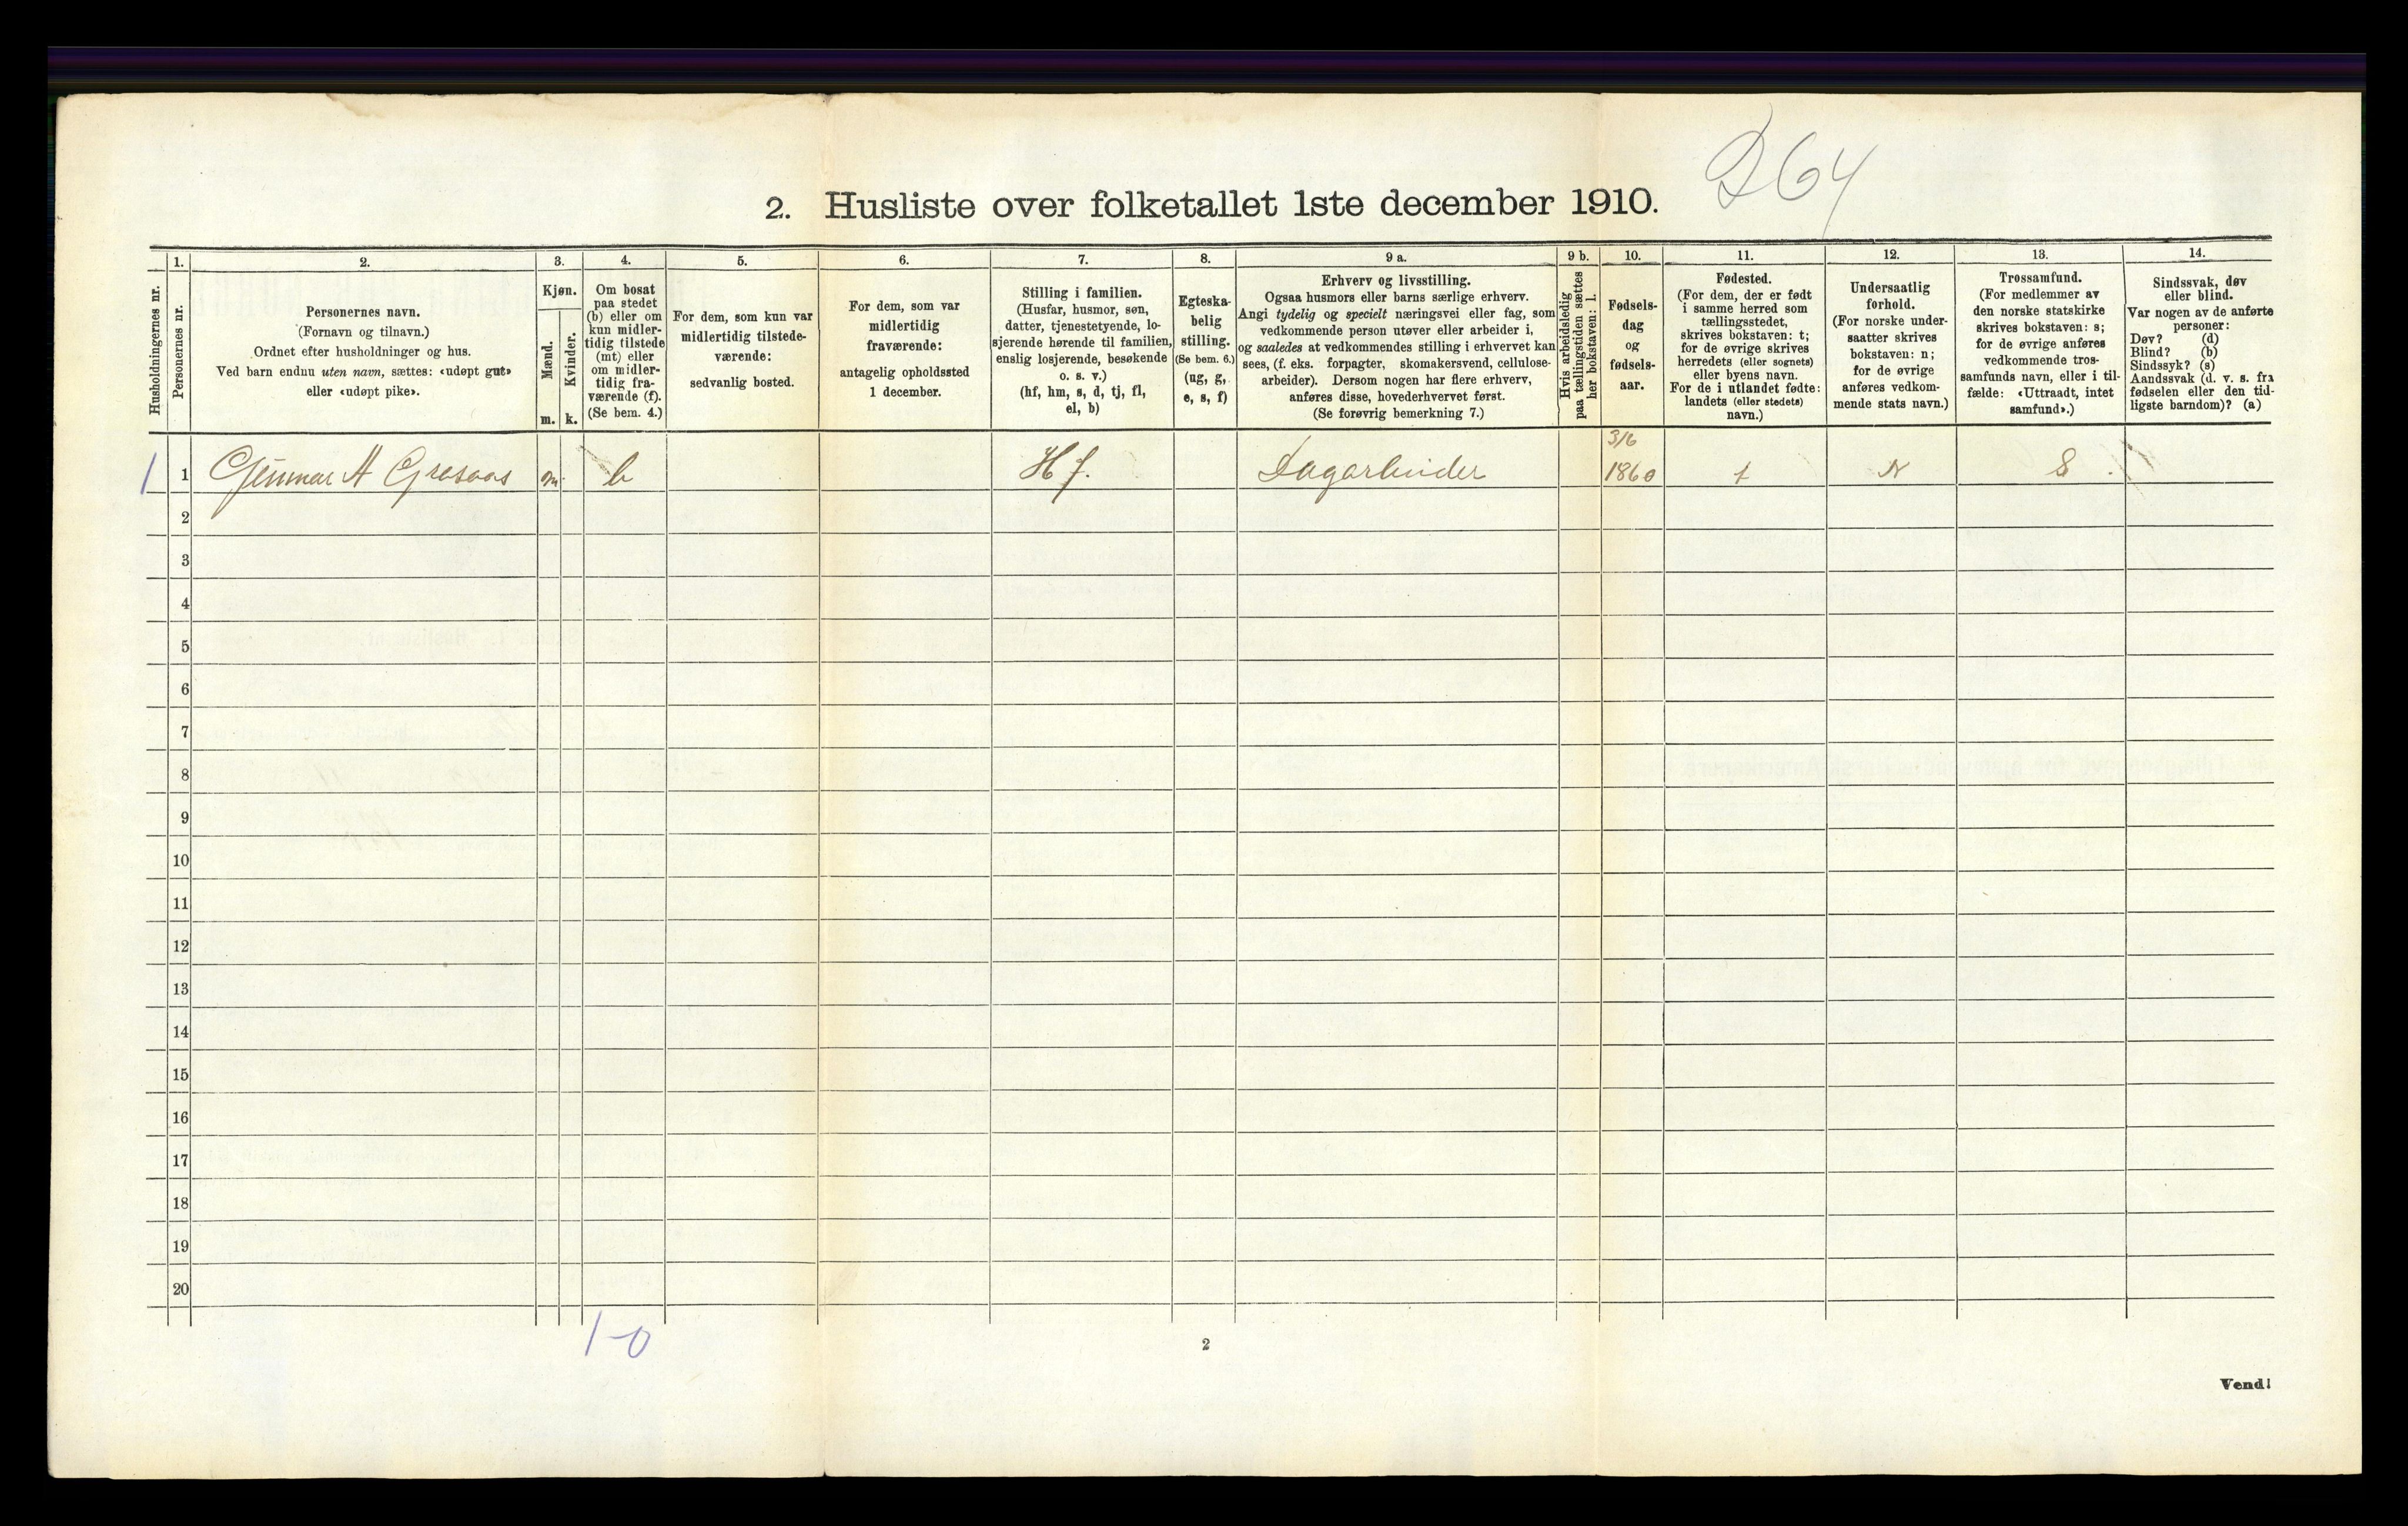 D 64
2. Husliste over folketallet 1ste december 1910.
Husholdningernes nr.
1.
Personernes nr.
2.
Personernes navn.
(Fornavn og tilnavn.)
Ordnet efter husholdninger og hus.
Ved barn endnu uten navn, sættes: «udøpt gut»
eller «udøpt pike».
3.
Kjøn.
Mænd.
m.
Kvinder.
k.
4.
Om bosat
paa stedet
(b) eller om
kun midler-
tidig tilstede
(mt) eller
om midler-
tidig fra-
værende (f).
(Se bem. 4.)
5.
For dem, som kun var
midlertidig tilstede-
værende:
sedvanlig bosted.
6.
For dem, som var
midlertidig
fraværende:
antagelig opholdssted
1 december.
7.
Stilling i familien.
(Husfar, husmor, søn,
datter, tjenestetyende, lo-
sjerende hørende til familien,
enslig losjerende, besøkende
o. s. v.)
(hf, hm, s, d, tj, fl,
el, b)
8.
Egteska-
belig
stilling.
(Se bem. 6.)
(ug, g,
e, s, f)
9 a.
Erhverv og livsstilling.
Ogsaa husmors eller barns særlige erhverv.
Angi tydelig og specielt næringsvei eller fag, som
vedkommende person utøver eller arbeider i,
og saaledes at vedkommendes stilling i erhvervet kan
sees, (f. eks. forpagter, skomakersvend, cellulose-
arbeider). Dersom nogen har flere erhverv,
anføres disse, hovederhvervet først.
(Se forøvrig bemerkning 7.)
9 b.
Hvis arbeidsledig
paa tællingstiden sættes
her bokstaven: l.
10.
Fødsels-
dag
og
fødsels-
aar.
11.
Fødested.
(For dem, der er født
i samme herred som
tællingsstedet,
skrives bokstaven: t;
for de øvrige skrives
herredets (eller sognets)
eller byens navn.
For de i utlandet fødte:
landets (eller stedets)
navn.)
12.
Undersaatlig
forhold.
(For norske under-
saatter skrives
bokstaven: n;
for de øvrige
anføres vedkom-
mende stats navn.)
13.
Trossamfund.
(For medlemmer av
den norske statskirke
skrives bokstaven: s;
for de øvrige anføres
vedkommende tros-
samfunds navn, eller i til-
fælde: «Uttraadt, intet
samfund».)
14.
Sindssvak, døv
eller blind.
Var nogen av de anførte
personer:
Døv? (d)
Blind? (b)
Sindssyk? (s)
Aandssvak (d. v. s. fra
fødselen eller den tid-
ligste barndom)? (a)
1 1 Gunnar A Grasaas m. b Hf. Dagarbeider 3/6 1860 t N S.
2
3
4
5
6
7
8
9
10
11
12
13
14
15
16
17
18
19
20
1-0
2
Vend!